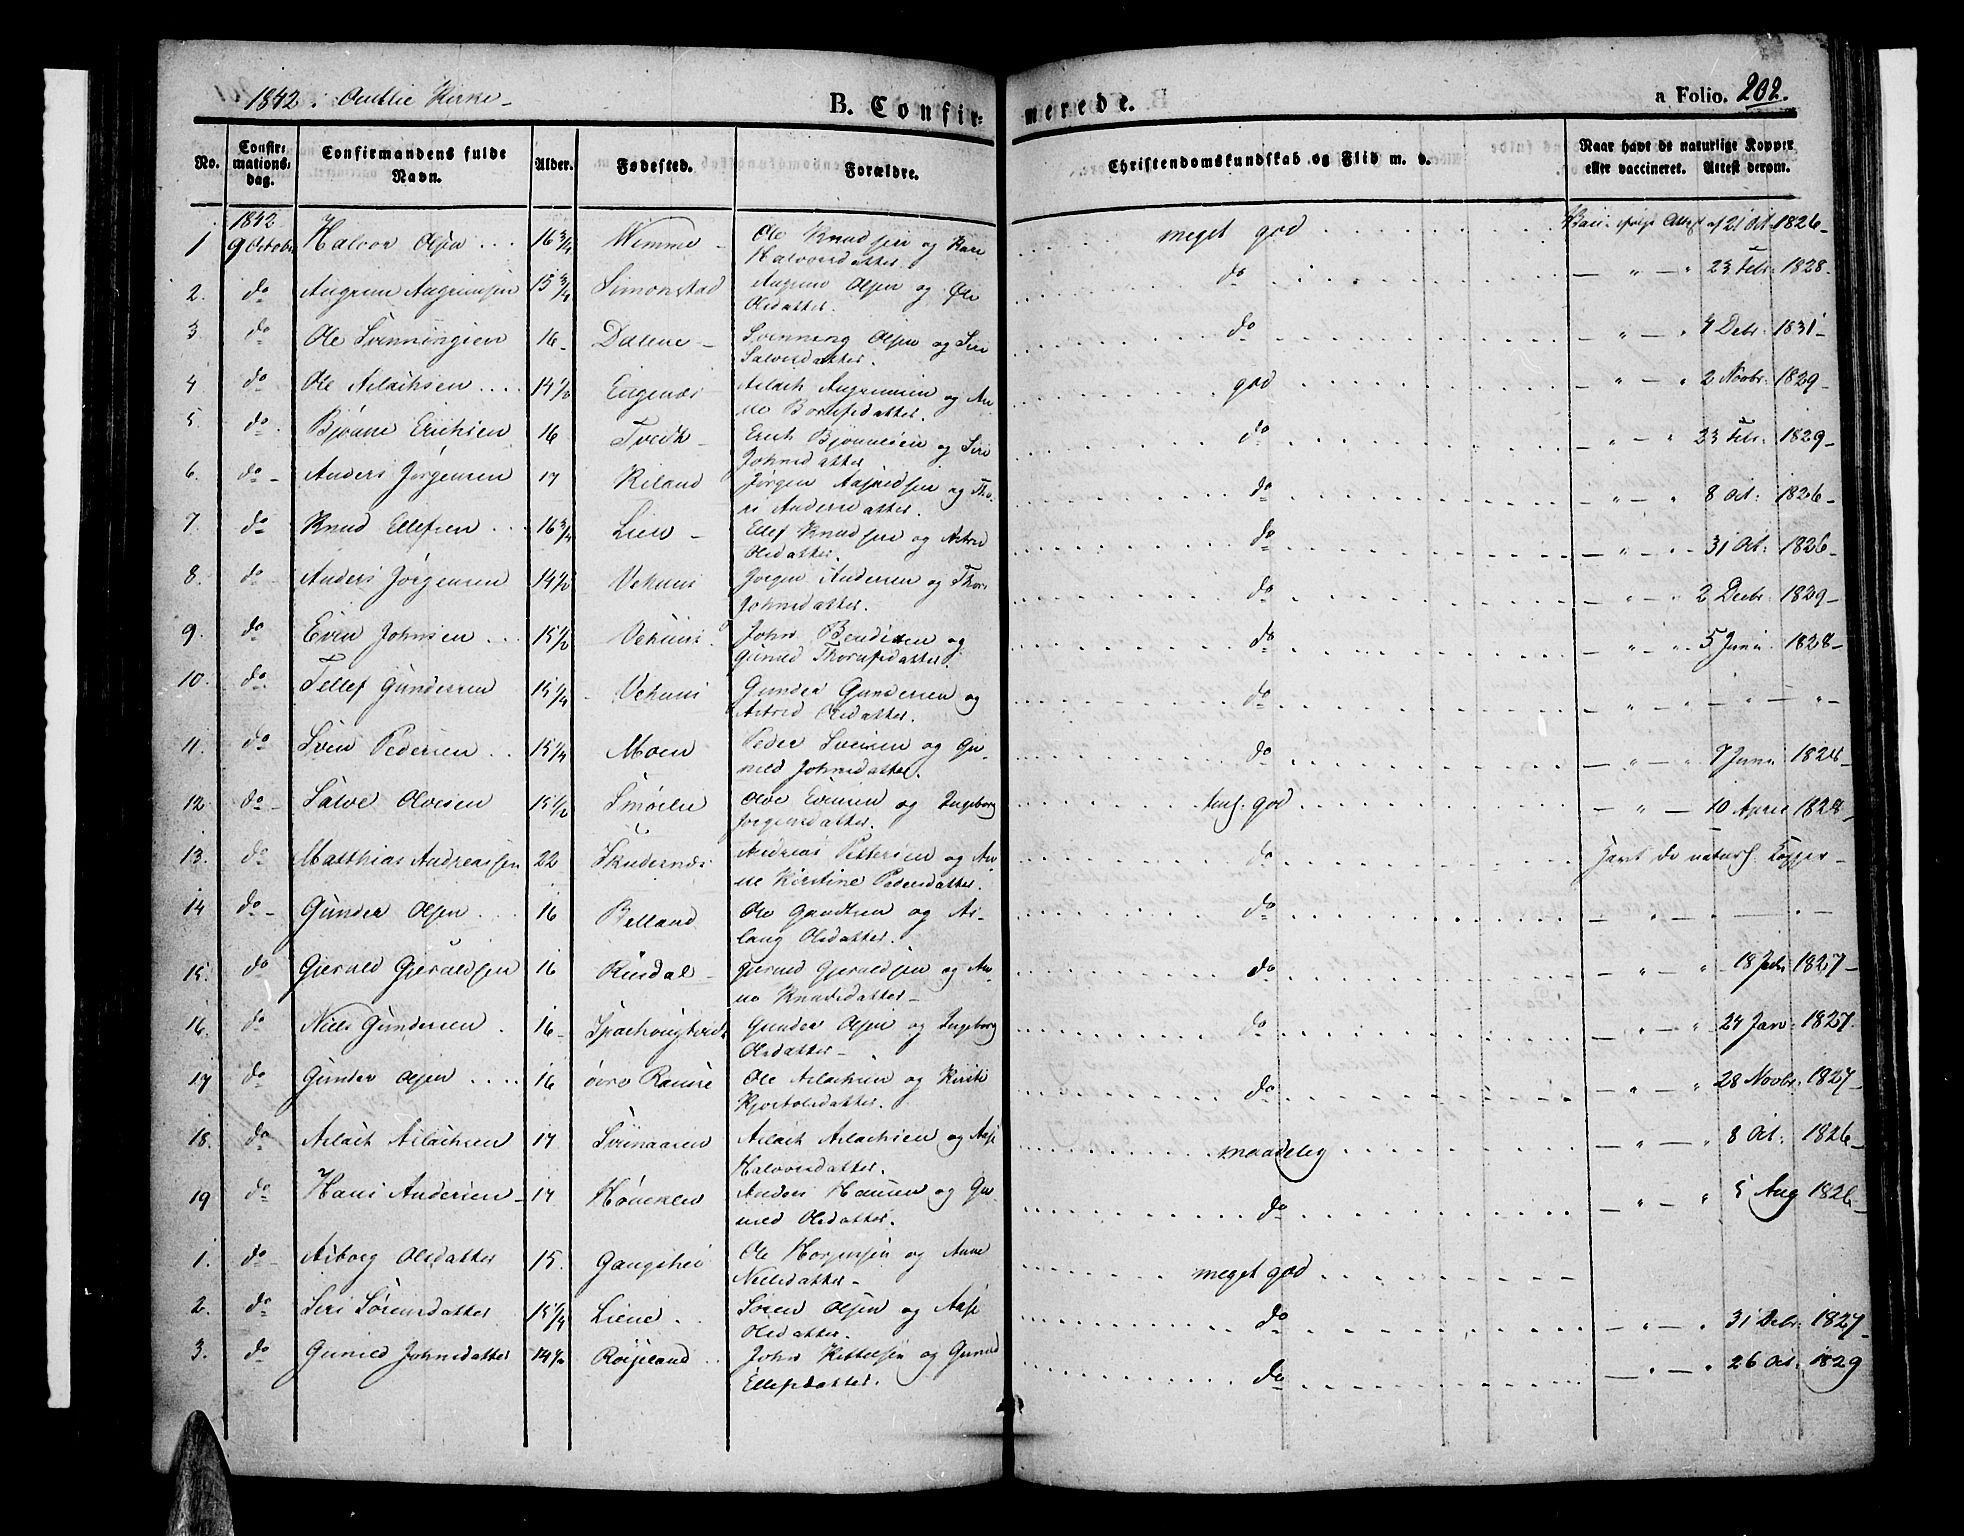 1842 i Omlie Kirke -
B. Confirmerede.
a Folio. 202.
No. Confirmationsdag. Confirmandens fulde Navn. Alder. Fødested. Forældre. Christendomskundskab og Flid m. v. Naar havt de naturlige Kopper eller vaccineret. Attest derom.
1842
1 9 October Halvor Olsen 16 3/4 Wimme - Ole Knudsen og Kari Halvorsdatter. meget god Attest af 21 Oct. 1826 -
2. do Augrim Augrimsen 15 3/4 Simonstad Augrim Olsen og Olsdatter. do — " — " 23 Febr: 1828.
3 do Ole Svenningsen 16 - Dalene - Svenning Olsen og Siri Salvesdatter. do " — " 4 Debr. 1831 -
4 do Ole Aslachsen 14 1/2 Engenæs Aslach Augrimsen og Anne god — " — " 2 Novbr. 1829 -
5. do Bjørne Erichsen 16 Tvedt - Erich Bjørnesen og Siri Johnsdatter do " — " 23 Febr: 1829 -
6. do - Anders Jørgensen 17 Riland Jørgen og Andersdatter. do — " — " 8 Oct: 1826 -
7. do Knud Ellefsen 16 3/4 Lien - Ellef Knudsen og Astrid Olsdatter. do — " — " 31 Oct: 1826 -
8. do Anders Jørgensen 14 1/2 Vehuus Jørgen Andersen og Johnsdatter. do — " — " 2 Decbr. 1829 -
9. do Even Johnsen 15 1/2 Vehuus. John Bendixen og Gunild do " — " 5 Juni 1828 -
10. do Tellef Gundersen 15 1/4 - Vehuus Gunder Gundersen og Astrid Olsdatter. do — " — " — " — " -
11. do Sven Pedersen 15 1/4 Moen Peder Svensen og Gunild Johnsdatter. do — " — " 7 Juni 1828 -
12 do Salve Olvesen 15 1/2 Smørlie Olve Evensen og Ingeborg Jørgensdatter. god — " — 10 April 1828 -
13. do Matthias Andreassen 22 Skudernæs Andreas Pettersen og Anne Kirstine Pedersdatter. do Havt de naturl. Kopper -
14 do - Gunder Olsen 16 Belland Ole og Aslaug Olsdatter. do — " — " —
15. do Gjerald Gjeraldsen 16 Risdal - Gjeruld Gjeraldsen og Anne Knudsdatter - do — " — " 18 1827 -
16. do Niels Gundersen 16 - Gunder Olsen og Ingeborg Olsdatter - do " — " 24 Janr. 1827.
17 do Gunder Olsen 16 øvre Ramse Ole Aslachsen og Kirsti Kjøstolsdatter. do — " — " 28 Novbr. 1827 -
18. do Aslach Aslachsen 17 Svenaasen Aslach Aslachsen og Aase Halvorsdatter. maadelig — " — " 8 Oct: 1826 -
19 do Hans Andersen - 17 Anders Hansen og Gunild Olsdatter. do " — " 5 Aug 1826 -
1. do - Asborg Olsdatter 15. Gangshei Ole og Anne Nielsdatter - meget god
2. do Siri Sørensdatter 15 1/4 Liene Søren Olsen og Aase Olsdatter. do — " — " 31 Debr. 1827 -
3. do Gunild Johnsdatter 14 1/2 John Kittelsen og Gunild Ellefsdatter. do — " — " 26 Oct: 1829